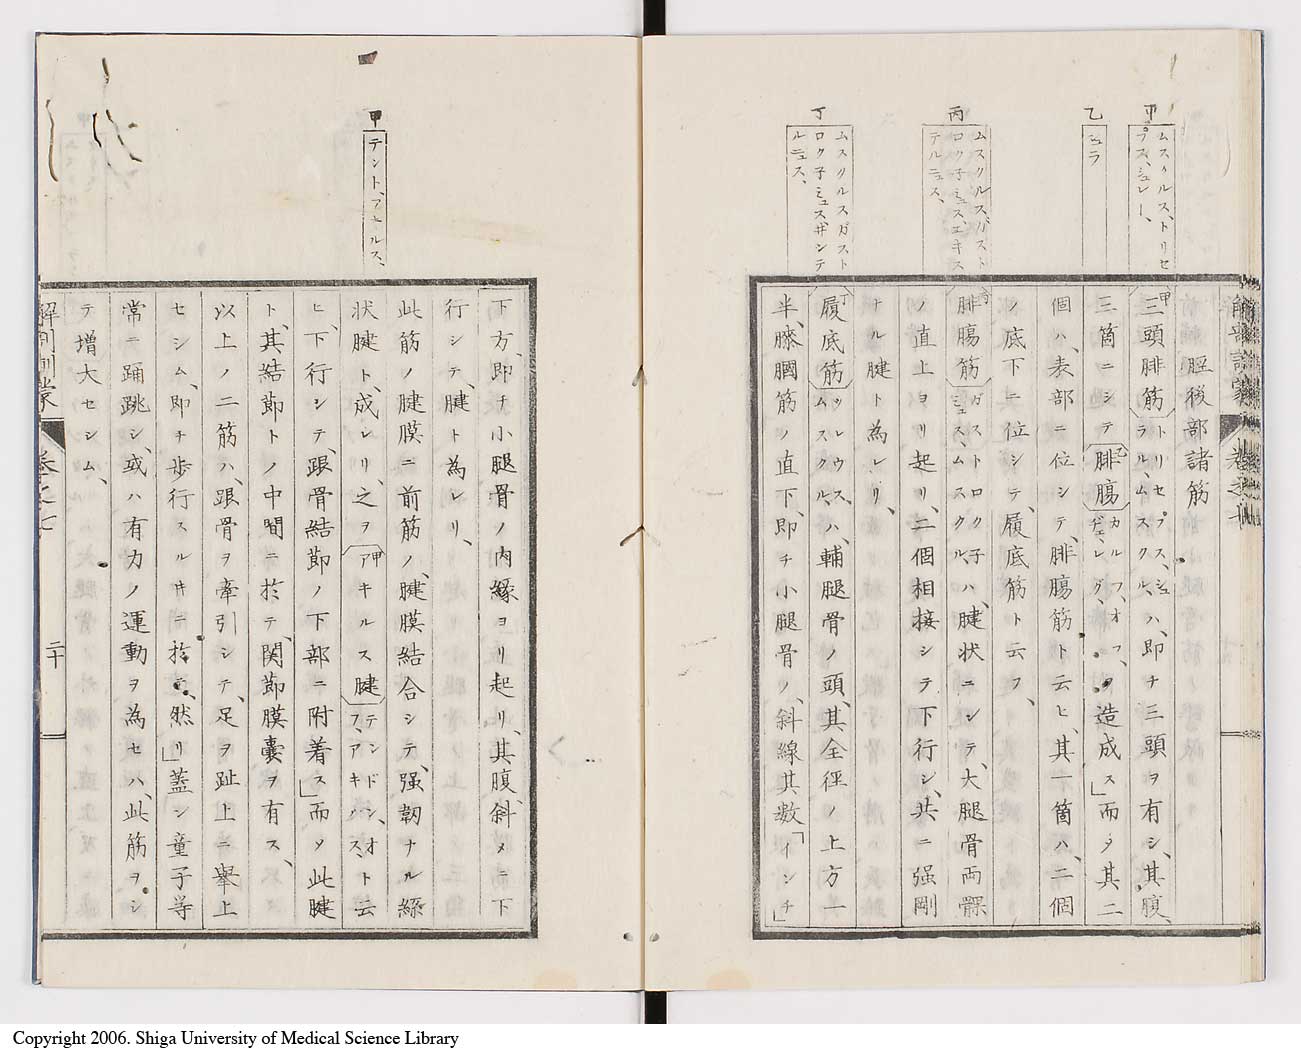 甲
ムスクルス、トリセ
プス、シュレー、
乙
シュラ
丙
ムスクルス、ガスト
ロク子ミュス、エキス
テルニュス、
丁
ムスクルスガスト
ロク子ミュス、井ンテ
ルニュス、
脛後部諸筋
三頭腓筋トリセプス、シュラル、ムスクル、ハ、即チ三頭ヲ有シ、其腹、
三箇ニシテ腓腸カルフ、オフ、デェ、レグ、ヲ造成ス」而シテ其二
個ハ、表部ニ位シテ、腓腸筋ト云ヒ、其一箇ハ、二個
ノ底下ニ位シテ、履底筋ト云フ、
腓腸筋ガストロク子ミュス、ムスクル、ハ、腱状ニシテ、大腿骨両髁
ノ直上ヨリ起リ、二個相接シテ下行シ、共ニ强剛
ナル腱ト為レリ、
履底筋ソレウス、ムスクル、ハ、輔腿骨ノ頭、其全徑ノ上方一
半、膝膕筋ノ直下、即チ小腿骨ノ、斜線其數「インチ」
甲
テンド、アヒルス、
下方、即チ小腿骨ノ内縁ヨリ起リ、其腹、斜メニ下
行シテ、腱ト為レリ、
此筋ノ腱膜ニ前筋ノ、腱膜結合シテ、强韌ナル絲
状腱ト、成レリ、之ヲアキルス腱テンドン、オフ、アキルス、ト云
ヒ、下行シテ、跟骨結節ノ下部ニ附着ス」而シテ此腱
ト、其結節トノ中間ニ於テ、関節膜嚢ヲ有ス、
以上ノ二筋ハ、跟骨ヲ牽引シテ、足ヲ趾上ニ擧上
セシム、即チ歩行スル井ニ於テ、然リ」蓋シ童子等
常ニ踊跳シ、或ハ有力ノ運動ヲ為セハ、此筋ヲシ
テ増大セシム、
二十
Copyright 2006. Shiga University of Medical Science Library